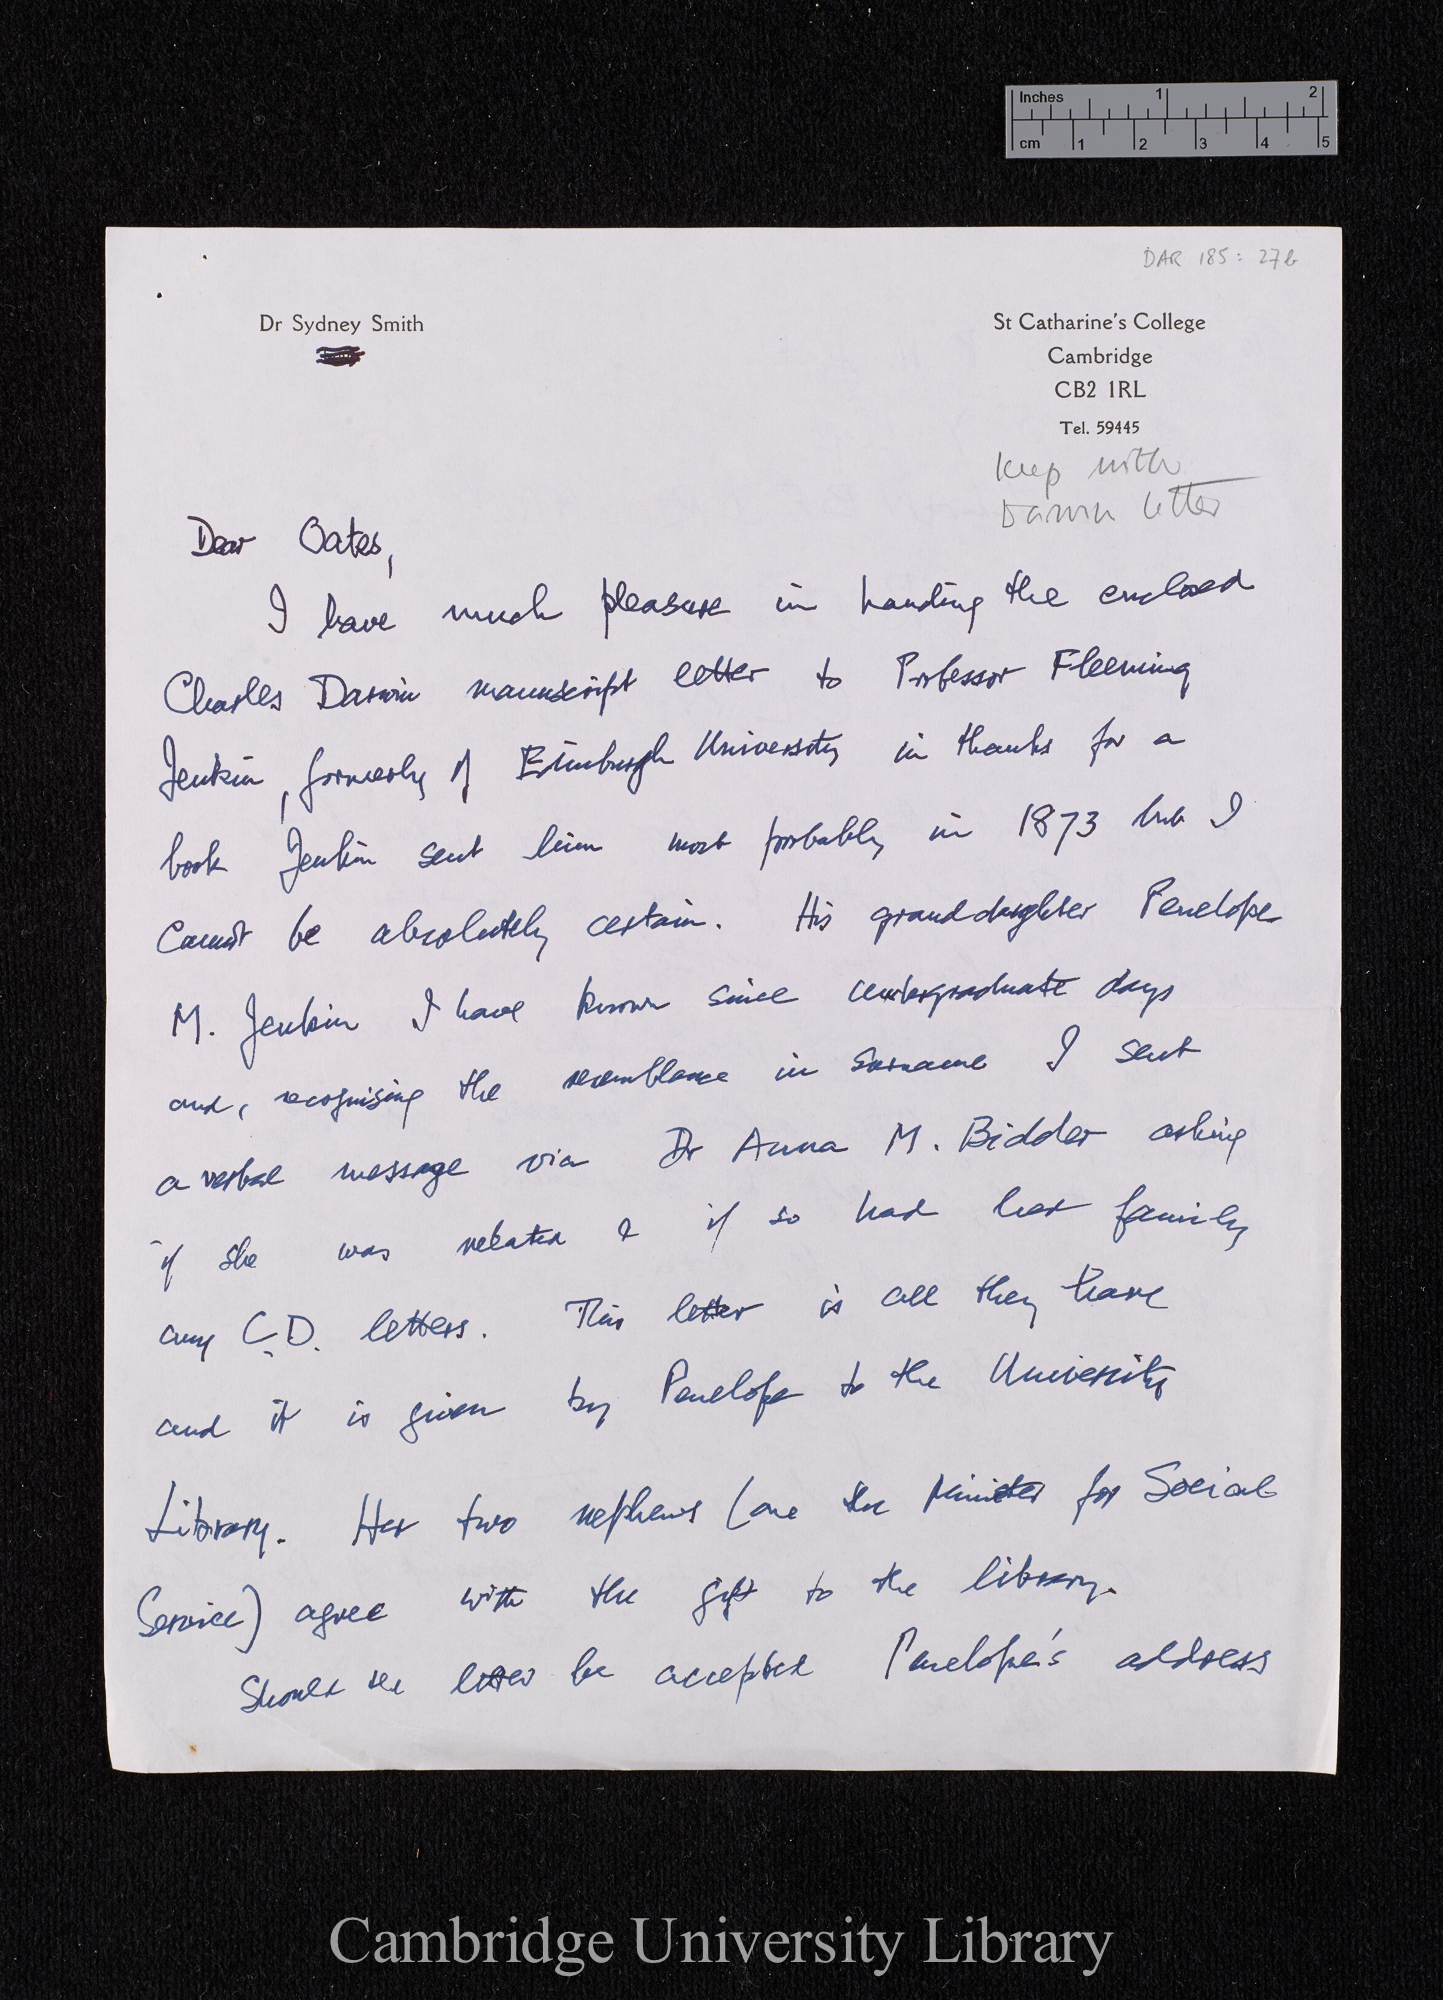 Inches 1 2
cm 1 2 3 4 5
DAR 185: 27b
Dr Sydney Smith
St Catharine's College
Cambridge
CB2 1RL
Tel. 59445
Keep with
Darwin letter
Dear Oates,
I have much pleasure in handing the enclosed
Charles Darwin manuscript letter to Professor Fleeming
Jenkin, formerly of Edinburgh University in thanks for a
book Jenkin sent him most probably in 1873 but I
cannot be absolutely certain. His granddaughter Penelope
M. Jenkin I have known since undergraduate days
and, recognising the resemblance in surname I sent
a verbal message via Dr Anna M. Bidder asking
if she was related & if so had her family
any C.D. letters. This letter is all they have
and it is given by Penelope to the University
Library. Her two nephews (one the Minister for Social
Service) agree with the gift to the library.
Should the letter be accepted Penelope's address
Cambridge University Library